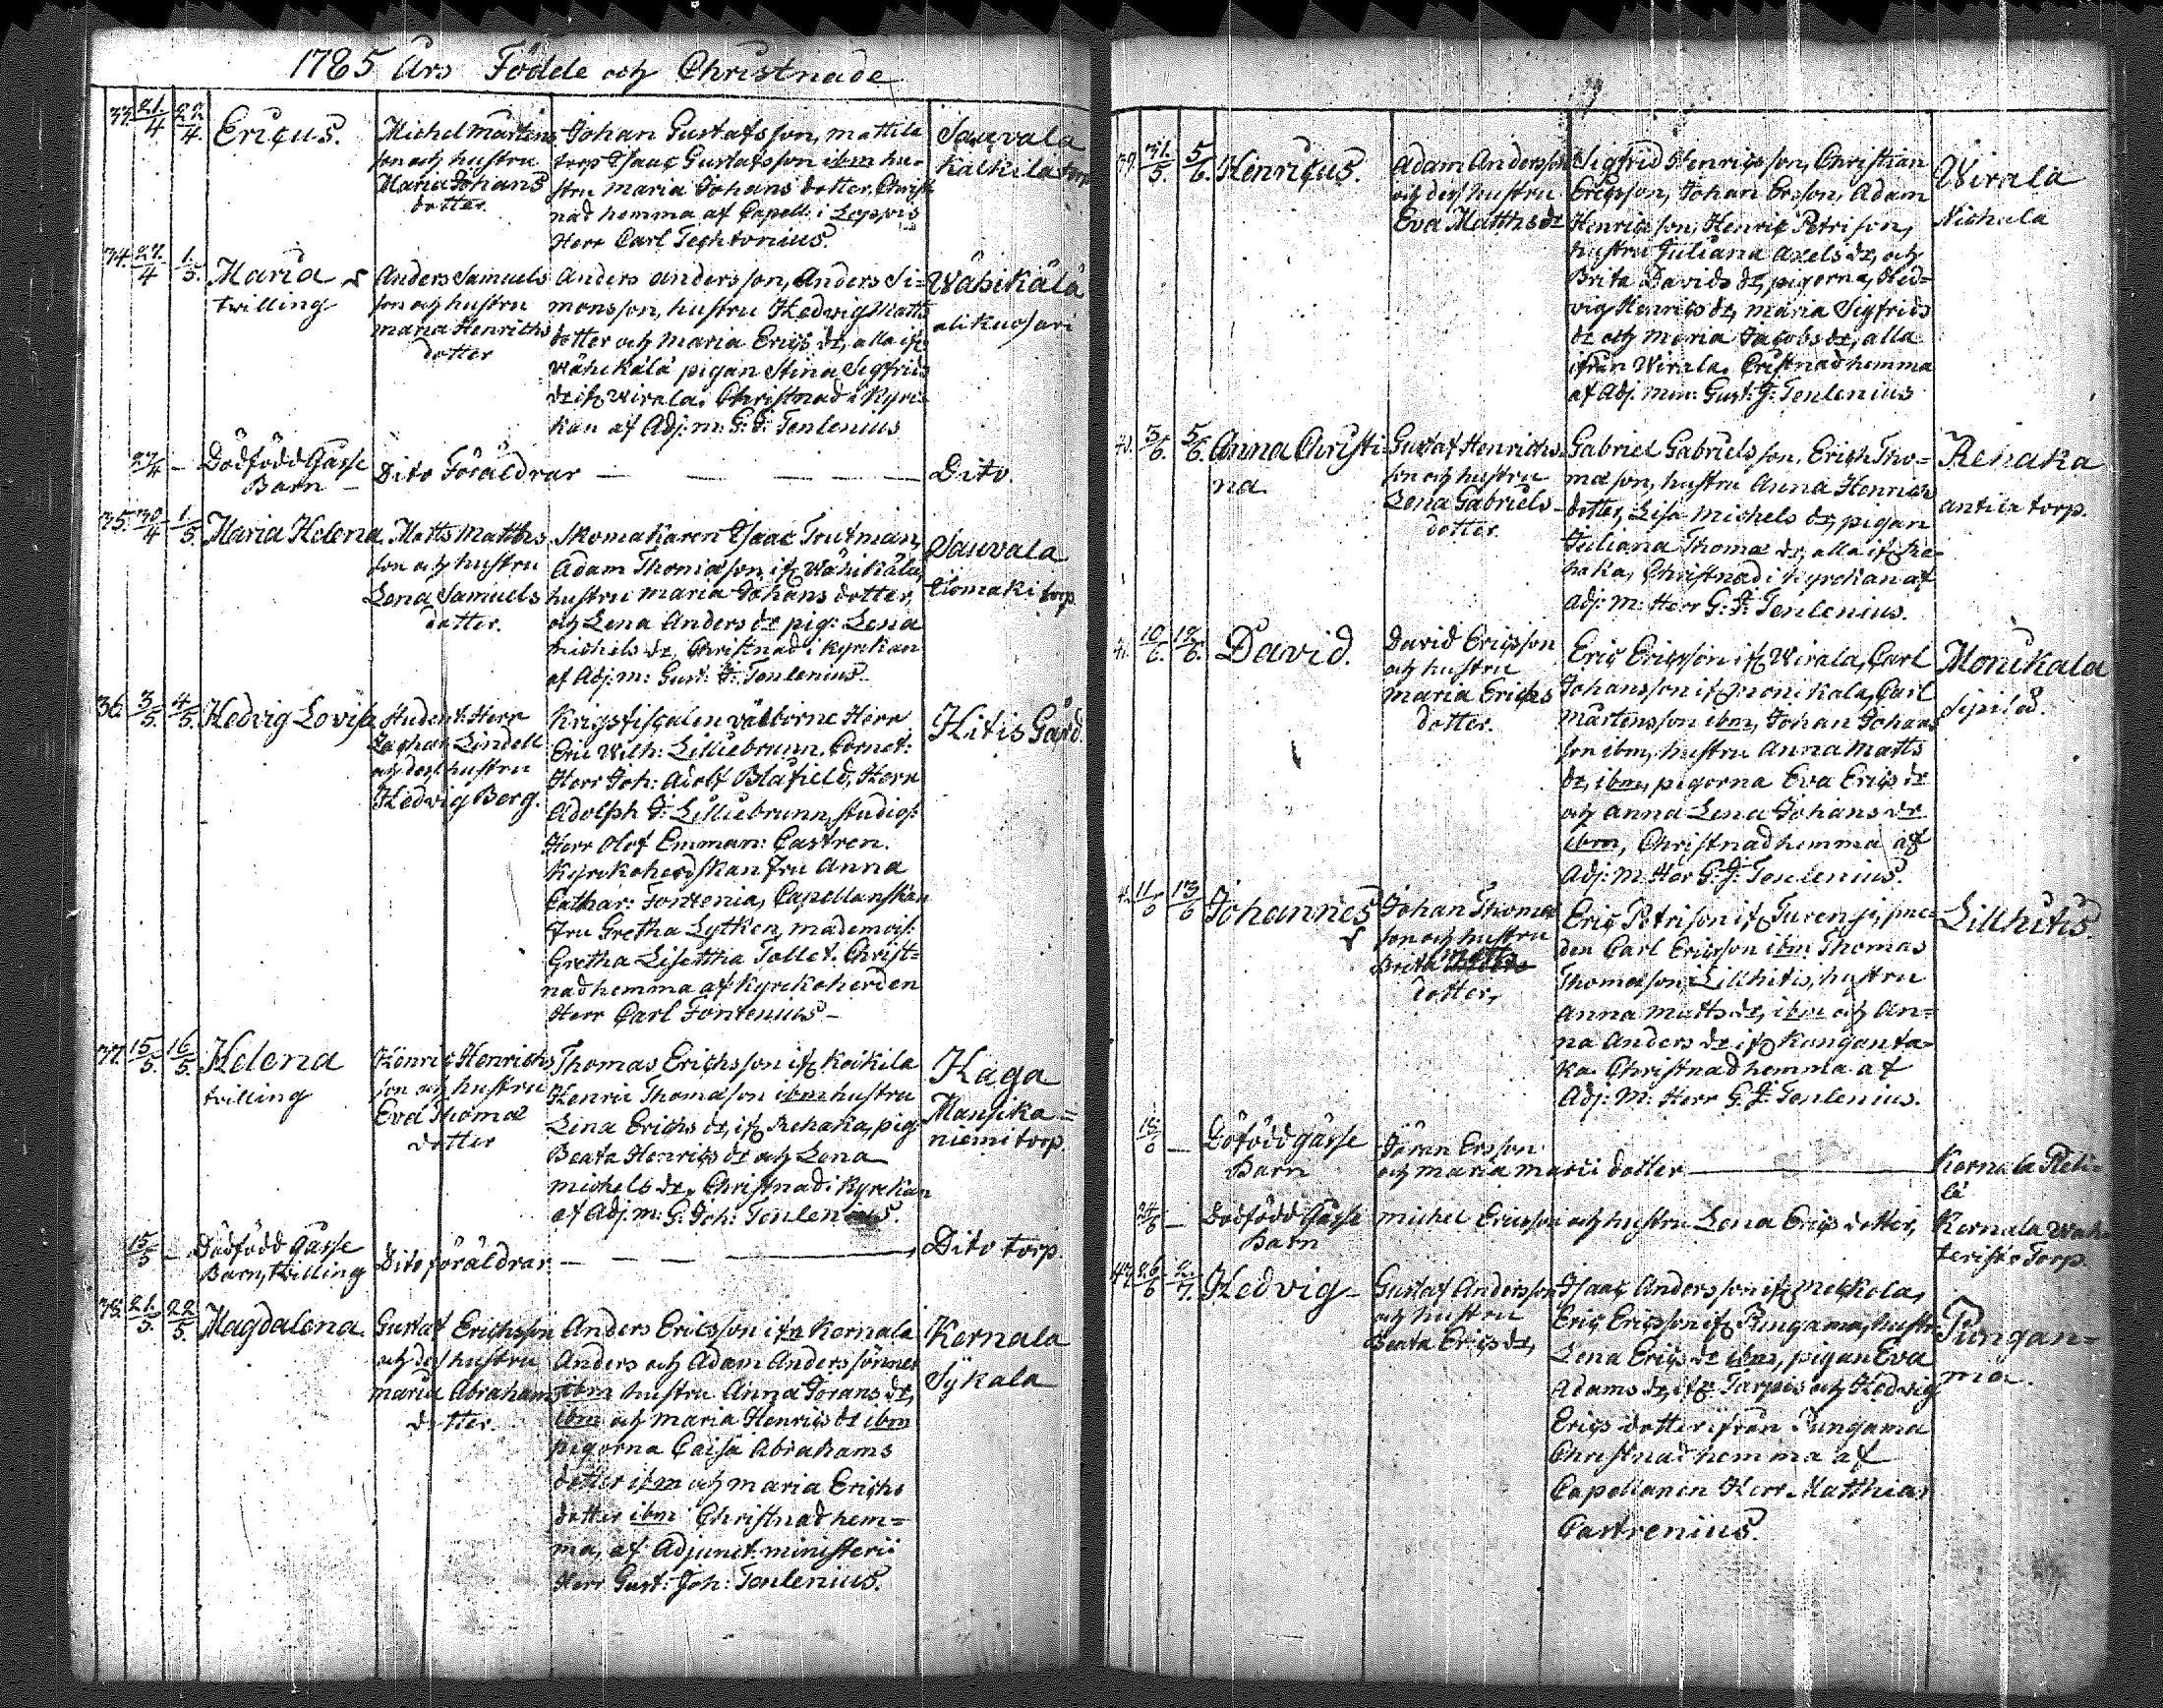 1785 Års Födde och Christnade
33. 21/4 22/4. Ericus.
Michel Mårtens
son och hustru
Maria Johans
dotter
Johan Gustafsson, Mattila
torp Isaac Gustafsson ibm hu-
stru Maria Johans dotter, Christ
nad hemma af Capell. i Loppis
Herr Carl Techtonius.
Sauvala
Kalkila torp
34. 27/4 1/5. Maria
tvilling
Anders Samuels
son och hustru
Maria Henrichs
dotter
Anders Andersson, Anders Si-
monsson, hustru Hedvig Matts
dotter och Maria Erics dr, alla ifr
Wähikälä pigan Stina Sigfrids
dr ifr Wirala. Christnad i Kyrc-
kan af Adj. m: G: J: Tenlenius
Wähikälä
alikuosari
27/4 — Dödfödd Gåsse
Barn —
Dito Föräldrar — — — —
Dito.
35. 30/4 1/5. Maria Helena
Matts Matths
son och hustru
Lena Samuels
dotter.
Skomakaren Isaac Trutman,
Adam Thomasson ifr Wähikälä,
hustru Maria Johans dotter,
och Lena Anders dr pig: Lena
Michels dr, Christnad i Kyrckan
af Adj: m: Gust: J: Tenlenius.
Sauvala
torp
36. 3/5. 4/5. Hedvig Lovisa
Student Herr
Zachar. Lindell
och dess hustru
Hedvig Berg.
Krigsfiscalen välborne Herr
Eric Wilh: Lilliebrunn, Cornet:
Herr Joh: Adolf Blåfield, Herr
Adolph J: Lilliebrunn, studios:
Herr Olof Emman: Castren.
Kyrckoherdskan Fru Anna
Cathar: Fontenia, Capellanskan
Fru Gretha Lytken, mademois:
Gretha Lisettha Tollet. Christ-
nad hemma af Kyrckoherden
Herr Carl Fontenius —
Hitis Gård.
37. 15/5. 16/5. Helena
tvilling
Henric Henrichs
son och hustru
Eva Thomæ
dotter
Thomas Erichsson ifr Koikila
Henric Thomasson ibm hustru
Lena Erichs dr, ifr Rehaka, pig:
Beata Henrics dr och Lena
Michels dr. Christnad i Kyrckan
af Adj. m: G: Joh: Tenlenius.
Haga
Mansika-
niemi torp.
15/5 — Dödfödd Gåsse
Barn, tvilling
Dito föräldrar — — —
Dito torp.
38. 21/5. 22/5. Magdalena
Gustaf Erichsson
och dess hustru
Maria Abrahams
dotter.
Anders Ericsson ifr Kernala
Anders och Adam Anderssönner
ibm hustru Anna Görans dr,
ibm och Maria Henrics dr ibm
pigorna Caisa Abrahams
dotter ibm och Maria Erichs
dotter ibm Christnad hem-
ma, af Adjunct. ministerii
Herr Gust: Joh: Tenlenius.
Kernala
Sykala
39. 31/5. 5/6. Henricus.
Adam Andersson
och dess hustru
Eva Matths dr
Sigfrid Henricsson, Christian
Ericsson, Johan Ersson, Adam
Henricsson, Henric Petrison,
hustru Juliana Axels dr, och
Brita Davids dr, pigorna, Hed-
vig Henrics dr, Maria Sigfrids
dr och Maria Jacobs dr, alla
ifrån Wirala. Cristnad hemma
af Adj. Min: Gust: J: Tenlenius
Wirala
Nichula
40. 3/6. 5/6. Anna Christi
na.
Gustaf Henrichs
son och hustru
Lena Gabriels-
dotter.
Gabriel Gabrielsson, Erich Tho-
mæson, hustru Anna Henrics
dotter, Lisa Michels dr, pigan
Juliana Thomæ dr, alla ifr Re-
haka, Christnad i Kyrckan af
Adj: M: Herr G: J: Tenlenius.
Rehaka
antila torp.
41. 10/6. 12/6. David.
David Ericsson
och hustru
Maria Erichs
dotter.
Eric Ericsson ifr Wirala, Carl
Johansson ifr Monikala, Carl
Mårtensson ibm, Johan Johans
son ibm, hustru Anna Matts
dr, ibm, pigorna Eva Erics dr
och Anna Lena Johans dr
ibm, Christnad hemma af
Adj: M: Her G: J: Tenlenius.
Monikala
Sipilä.
11/6 13/6 Johannes
Johan Thomæ
son och hustru
Brita Matts
dotter,
Eric Petrison ifr Turengi, sme-
den Carl Ericsson ibm Thomas
Thomæson i Lillhitis, hustru
Anna Matts dr, ibm och An-
na Anders dr ifr Kanganta-
ka. Christnad hemma af
Adj: M: Herr G: J: Tenlenius.
Lillhitis.
18/6 — Döfödd gåsse
Barn
Göran Ersson
och Maria Marci dotter —
Kernala
24/6 — Dödfödd Gåsse
Barn
Michel Ericsson och hustru Lena Erics dotter,
Kernala
Torp.
26/6 2/7. Hedvig
Gustaf Andersson
och hustru
Beata Erics dr,
Isaac Andersson ifr Meckola,
Eric Ericsson ifr Pungama, hustr.
Lena Erics dr ibm, pigan Eva
Adams dr, ifr Tarpis och Hedvig
Erics dotter ifrån Pungama
Christnad hemma af
Capellanen Herr Matthias
Castrenius.
Pungan-
ma.